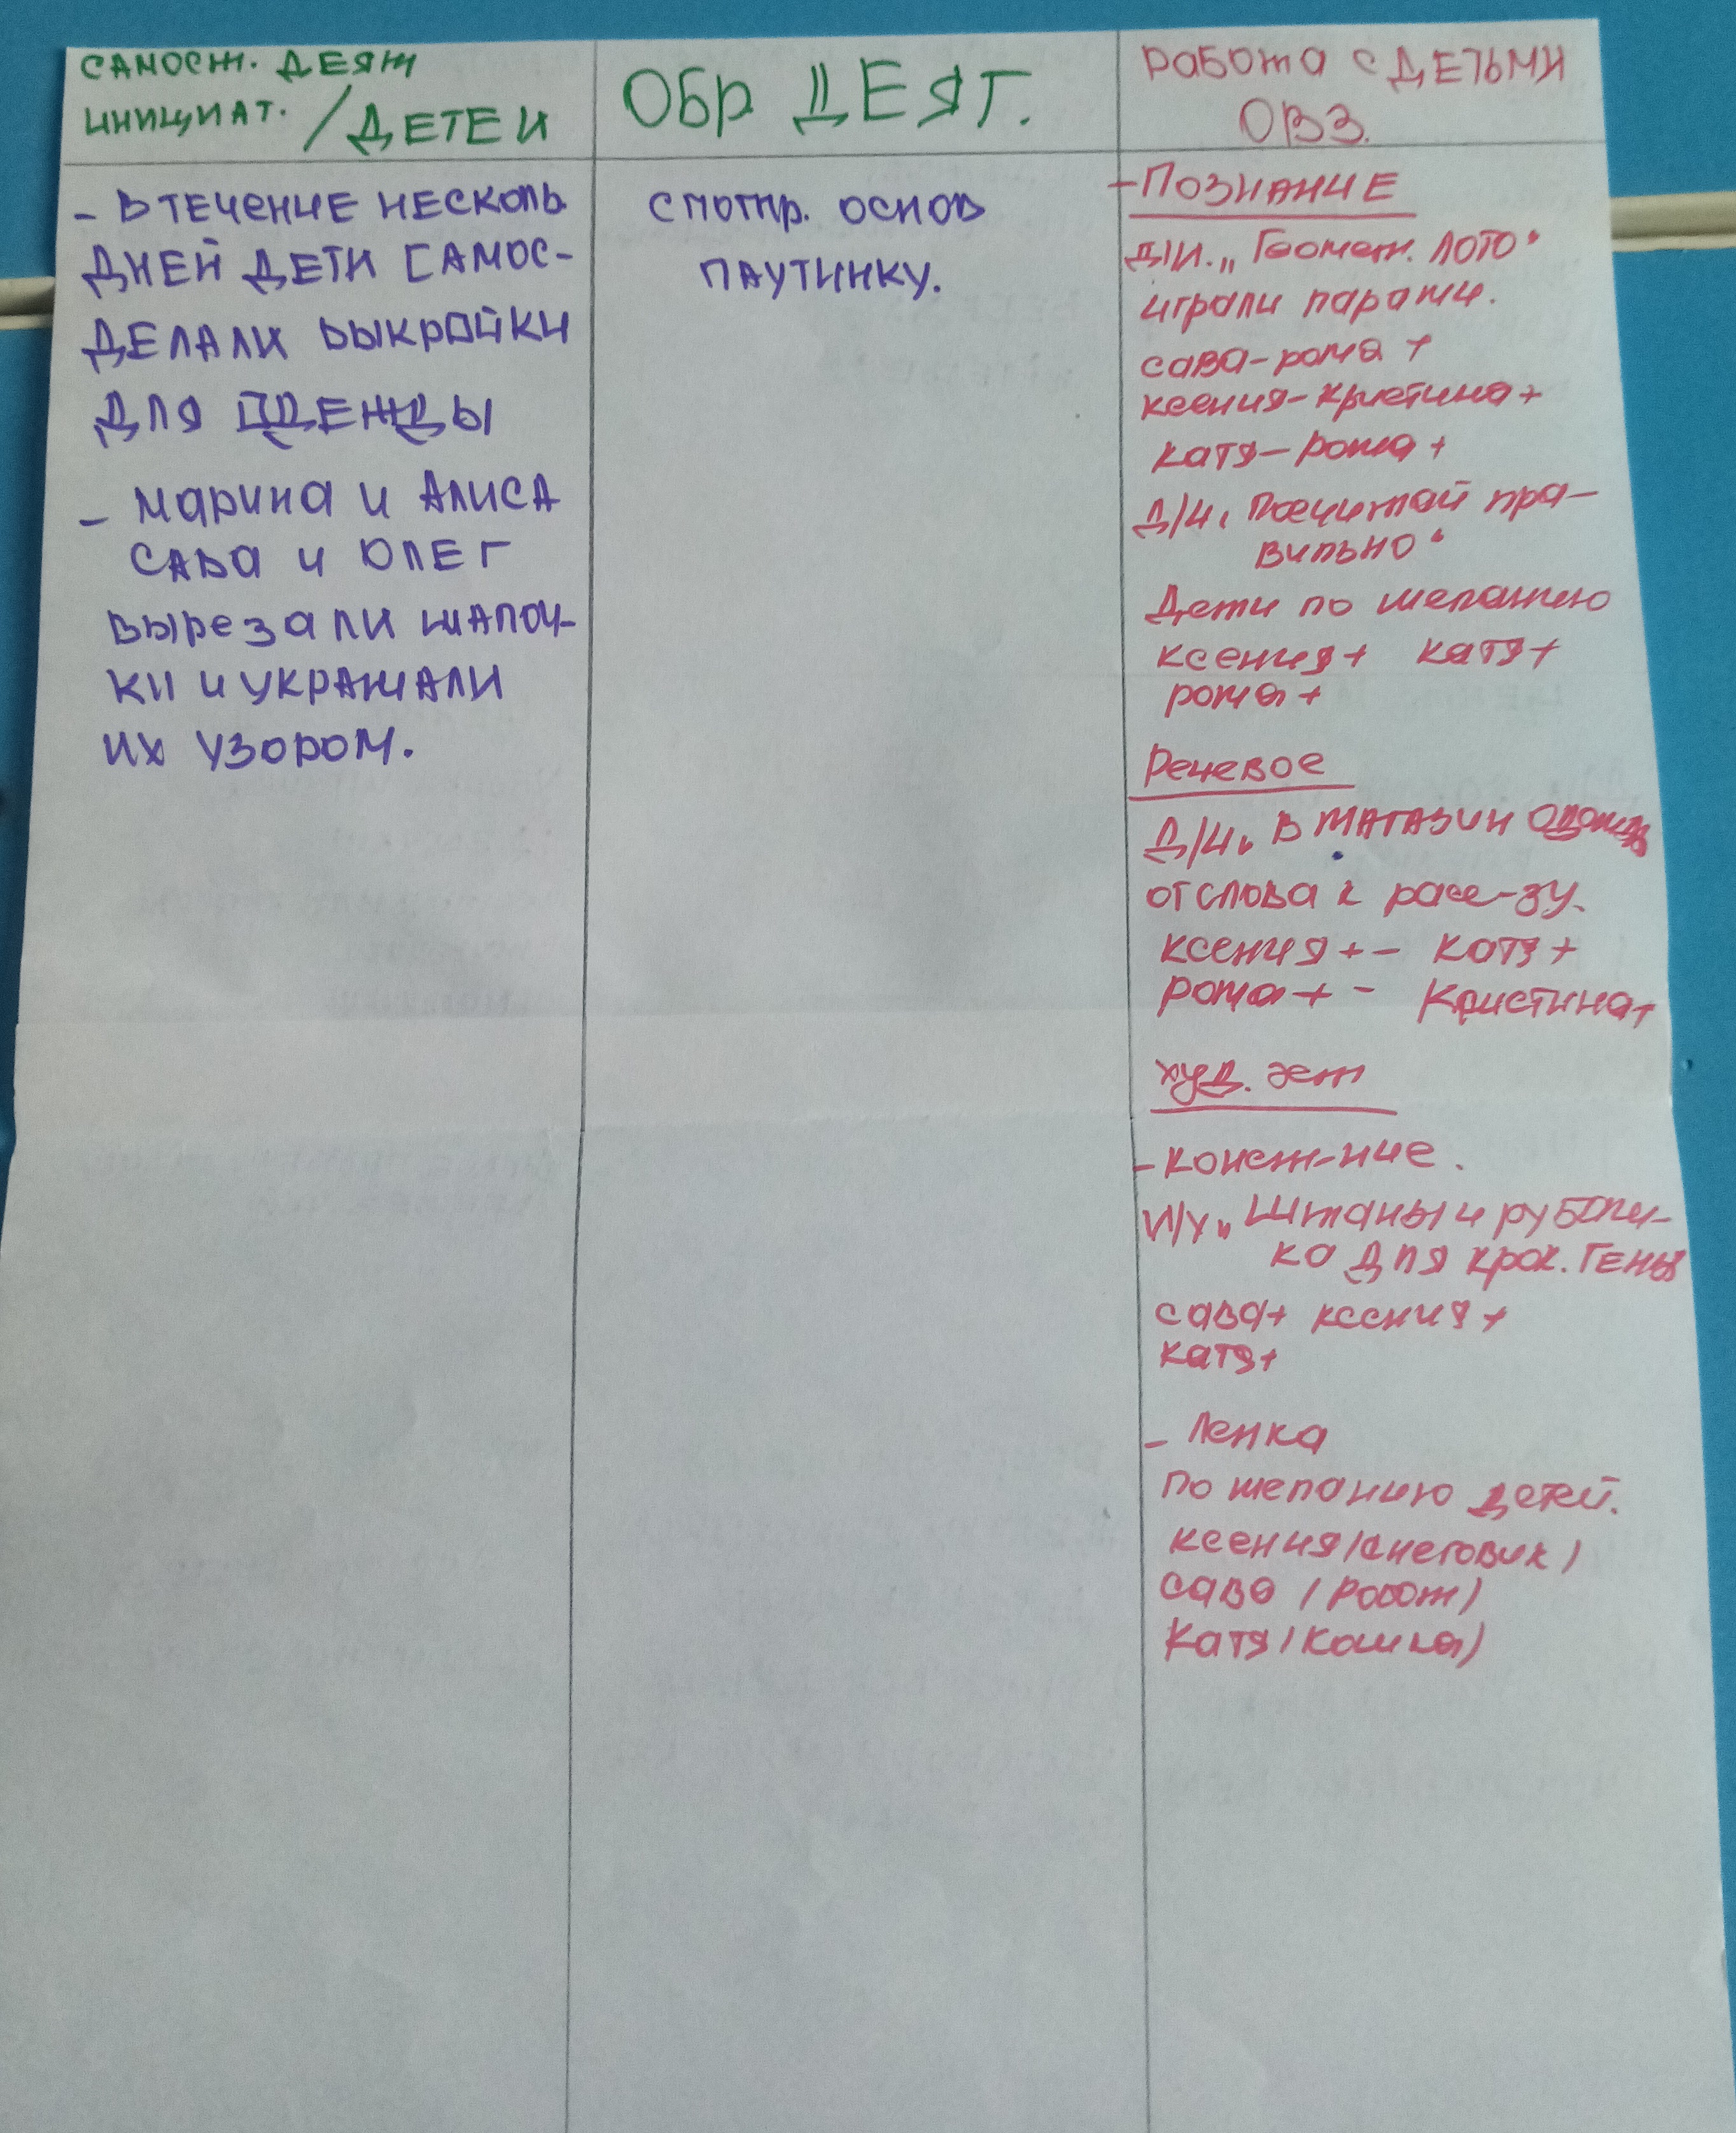 САМОСТ. ДЕЯТ
ИНИЦИАТ. / ДЕТЕЙ
- В ТЕЧЕНИЕ НЕСКОЛЬ
ДНЕЙ ДЕТИ САМОС-
ДЕЛАЛИ ВЫКРОЙКИ
ДЛЯ ОДЕЖДЫ
- МАРИНА И АЛИСА
САВА И ОЛЕГ
ВЫРЕЗАЛИ ШАПОЧ-
КИ И УКРАШАЛИ
ИХ УЗОРОМ.
ОБР ДЕЯТ.
СМОТР. ОСНОВ
ПАУТИНКУ.
Работа с ДЕТЬМИ
ОВЗ.
- ПОЗНАНИЕ
Д/И. „Геомет. ЛОТО“
играли парами.
сава-рома +
ксения-Кристина+
Катя-Рома+
Д/И „Посчитай пра-
вильно“
Дети по желанию
ксения+ катя+
рома+
Речевое
Д/И „В МАГАЗИН
от слова к расс-зу.
ксения+- катя+
рома+- Кристина+
худ. эст
- конст-ние.
И/У „Штаны и рубаш-
ка для крок. Гены
сава+ ксения+
катя+
- Лепка
По желанию детей.
ксения (снеговик)
сава (робот)
Катя (кошка)